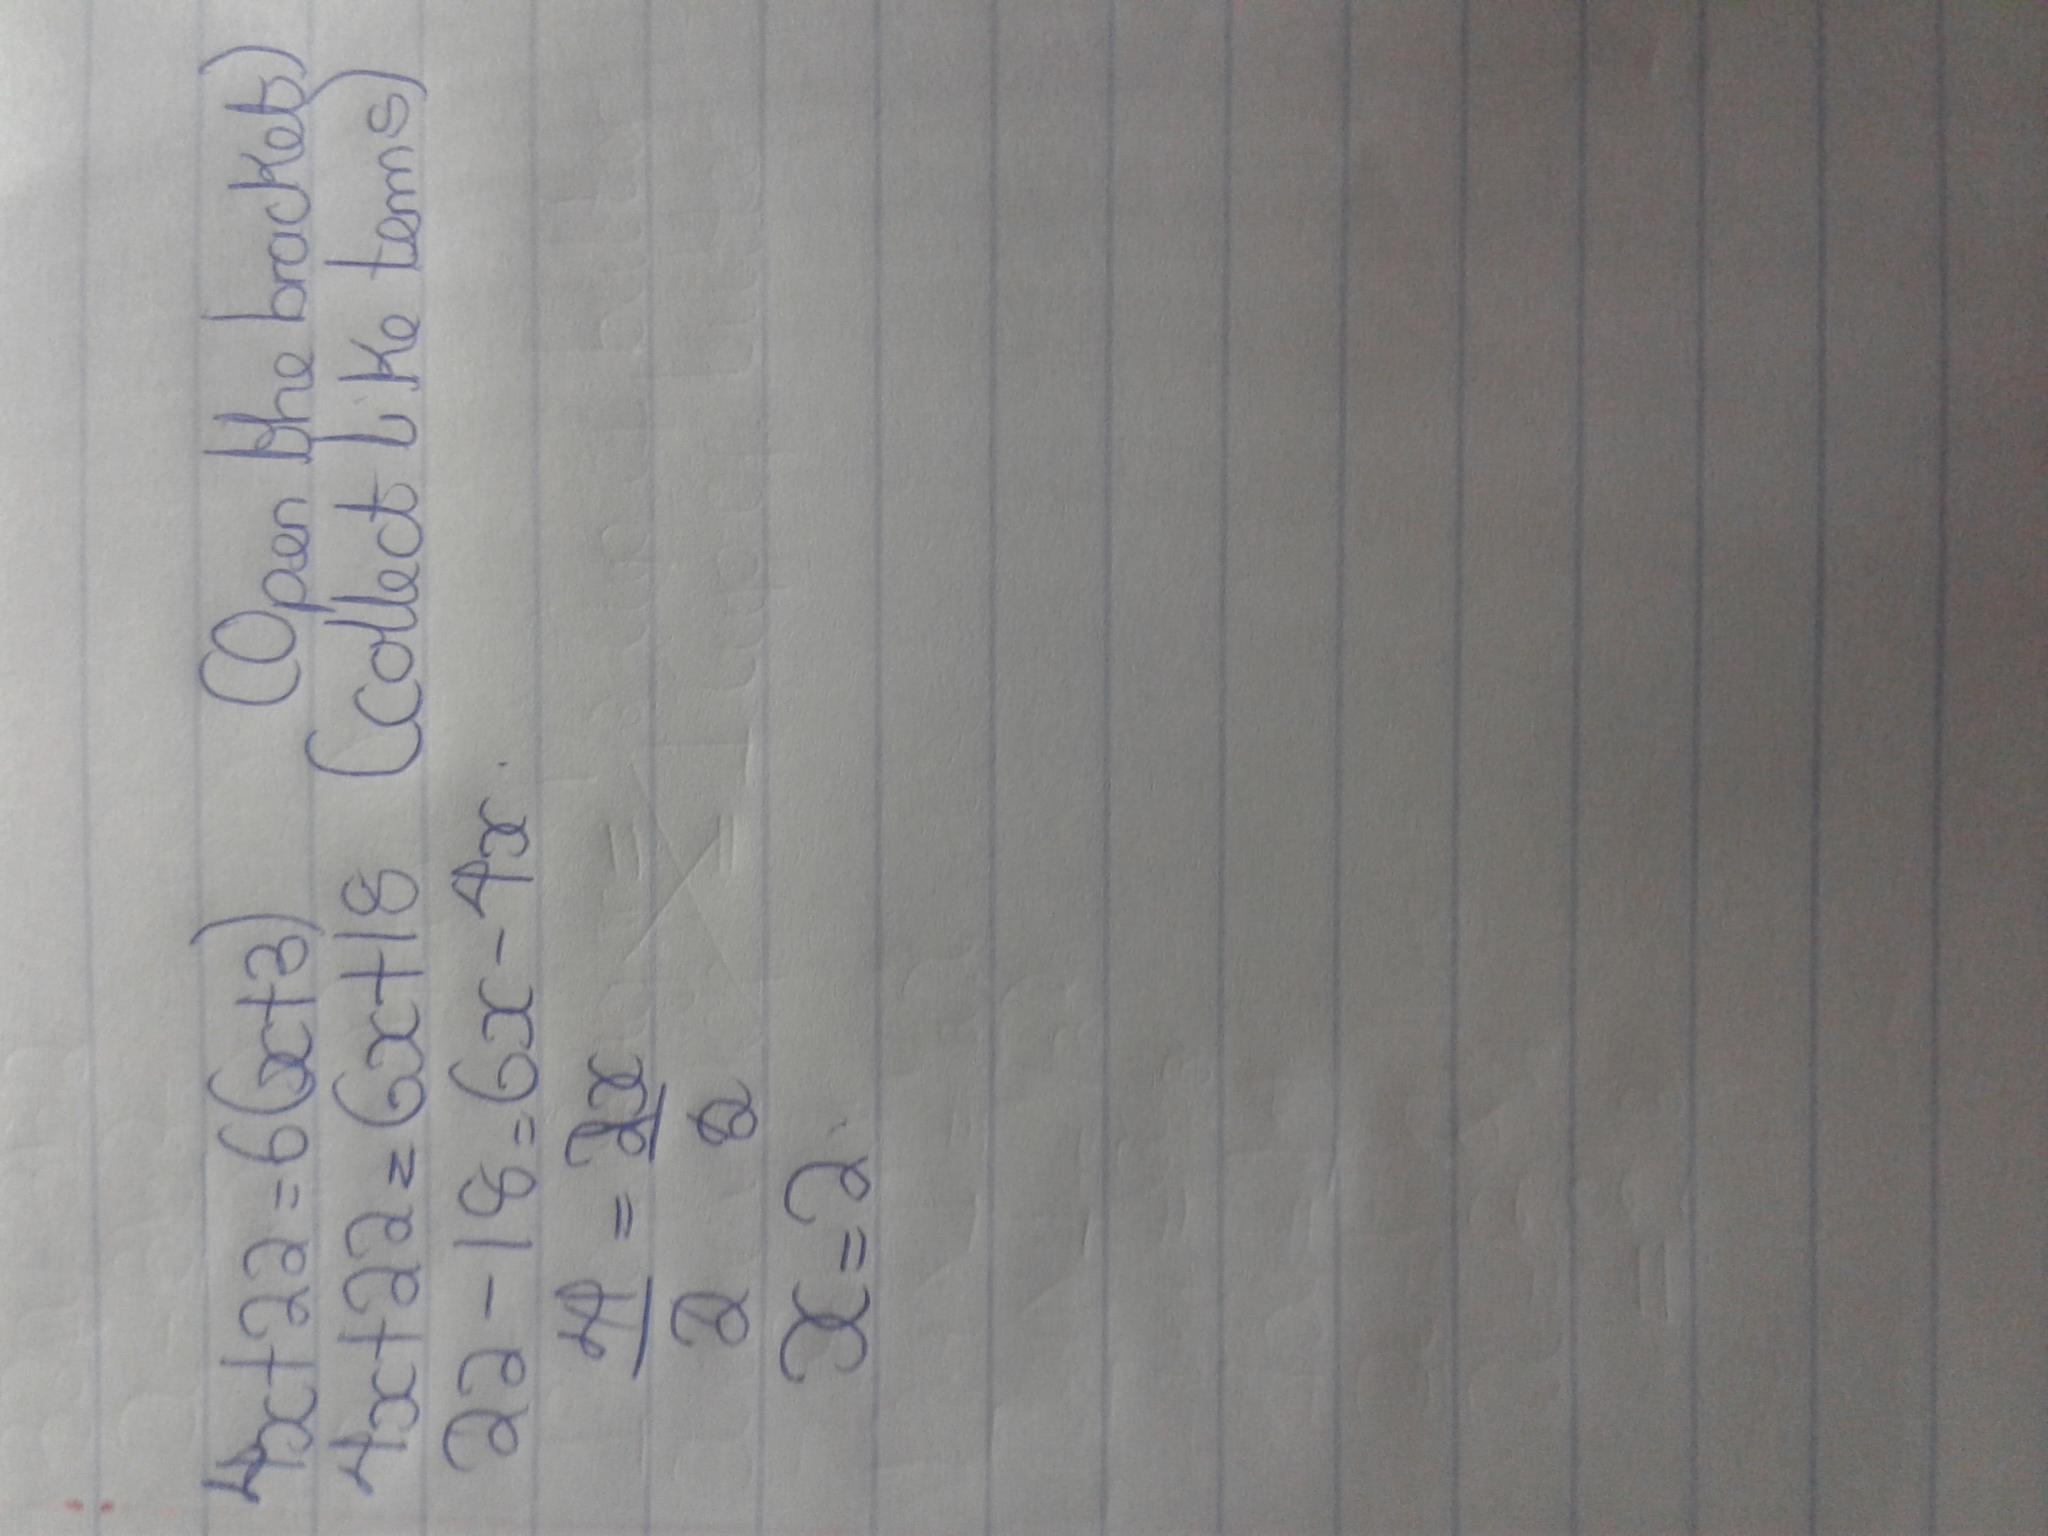 4x+22=6(x+3) (Open the bracket)
4x+22=6x+18 (collect like tems)
22-18=6x-4x.
4 = 2x
2 2
x=2.